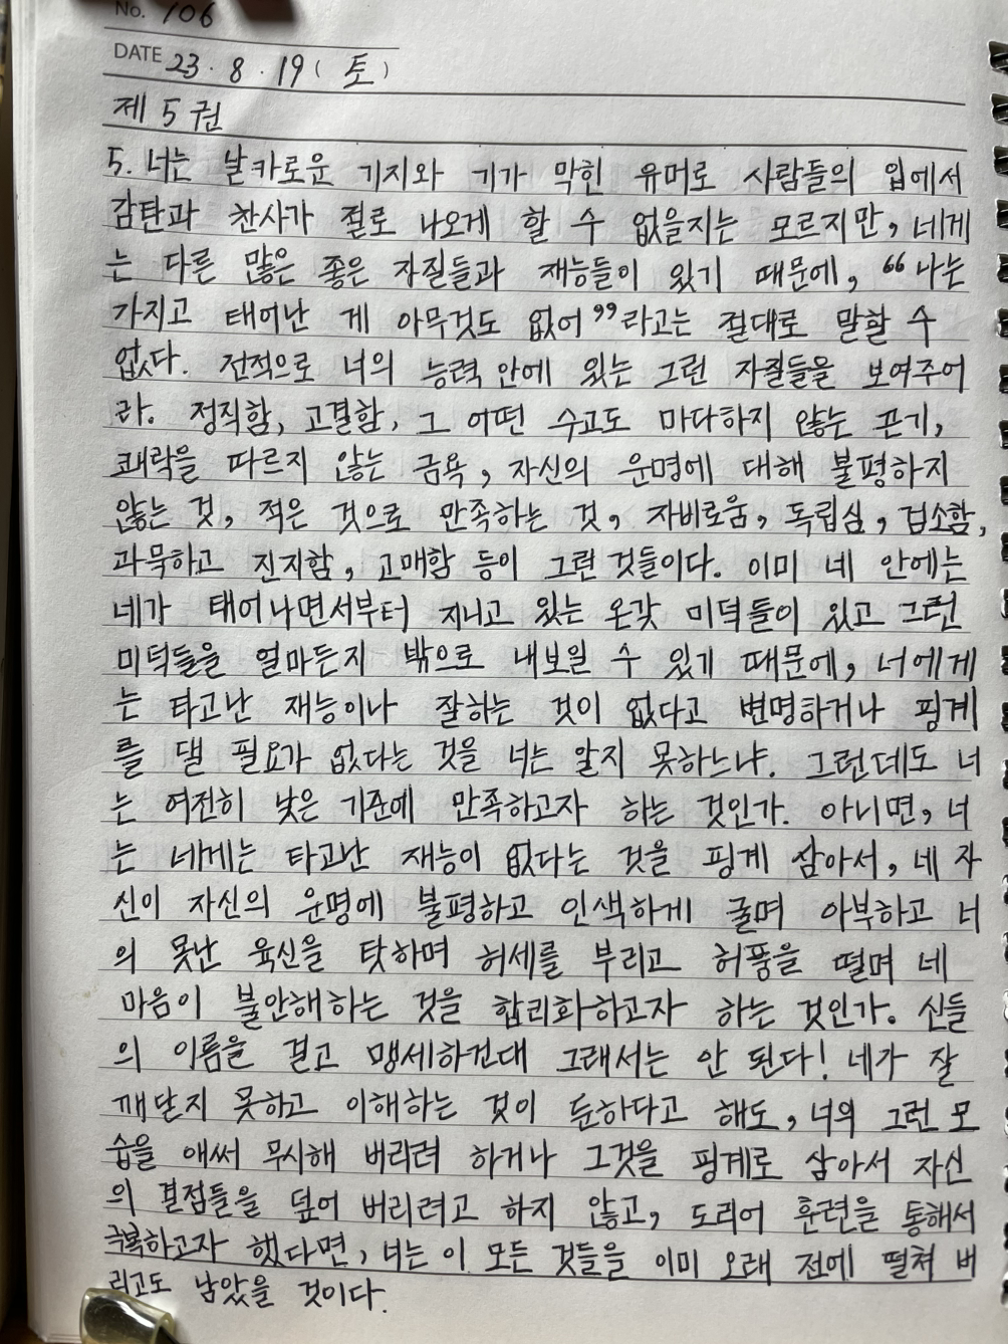 No. 106
DATE 23. 8. 19 ( 토 )
제 5 권
5. 너는 날카로운 기지와 기가 막힌 유머로 사람들의 입에서
감탄과 찬사가 절로 나오게 할 수 없을지는 모르지만, 네게
는 다른 많은 좋은 자질들과 재능들이 있기 때문에, “나는
가지고 태어난 게 아무것도 없어”라고는 절대로 말할 수
없다. 전적으로 너의 능력 안에 있는 그런 자질들을 보여주어
라. 정직함, 고결함, 그 어떤 수고도 마다하지 않는 끈기,
쾌락을 따르지 않는 금욕, 자신의 운명에 대해 불평하지
않는 것, 적은 것으로 만족하는 것, 자비로움, 독립심, 검소함,
과묵하고 진지함, 고매함 등이 그런 것들이다. 이미 네 안에는
네가 태어나면서부터 지니고 있는 온갖 미덕들이 있고 그런
미덕들을 얼마든지 밖으로 내보일 수 있기 때문에, 너에게
는 타고난 재능이나 잘하는 것이 없다고 변명하거나 핑계
를 댈 필요가 없다는 것을 너는 알지 못하느냐. 그런데도 너
는 여전히 낮은 기준에 만족하고자 하는 것인가. 아니면, 너
는 네게는 타고난 재능이 없다는 것을 핑계 삼아서, 네 자
신이 자신의 운명에 불평하고 인색하게 굴며 아부하고 너
의 못난 육신을 탓하며 허세를 부리고 허풍을 떨며 네
마음이 불안해하는 것을 합리화하고자 하는 것인가. 신들
의 이름을 걸고 맹세하건대 그래서는 안 된다! 네가 잘
깨닫지 못하고 이해하는 것이 둔하다고 해도, 너의 그런 모
습을 애써 무시해 버리려 하거나 그것을 핑계로 삼아서 자신
의 결점들을 덮어 버리려고 하지 않고, 도리어 훈련을 통해서
극복하고자 했다면, 너는 이 모든 것들을 이미 오래 전에 떨쳐 버
리고도 남았을 것이다.